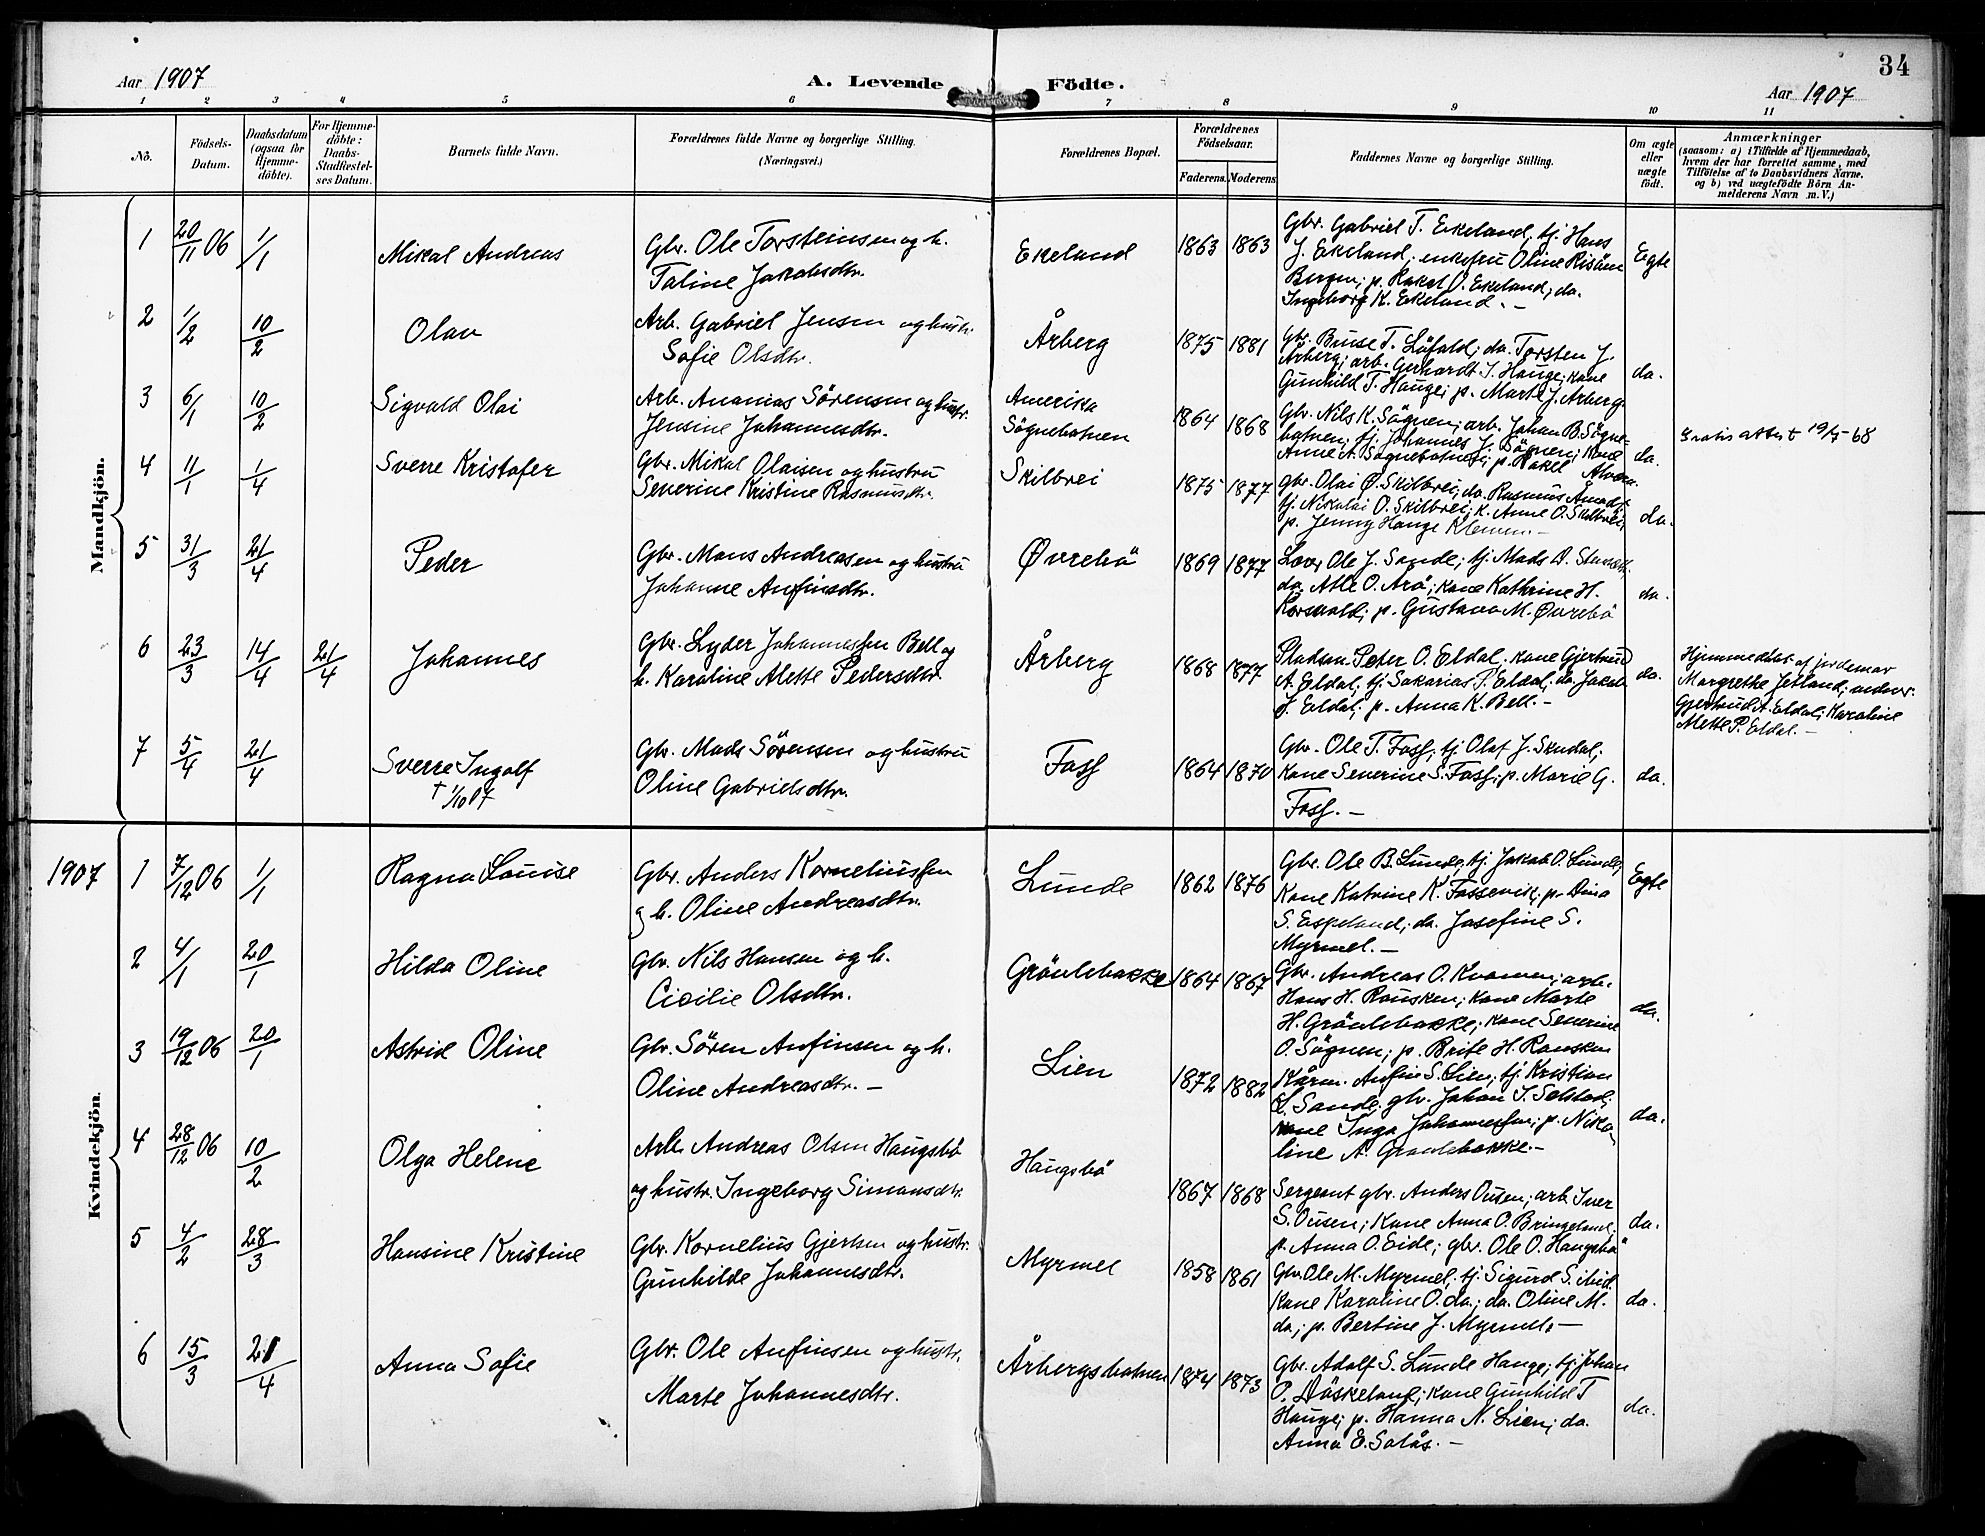 34
Aar 1907
A. Levende Födte.
Aar 1907
1 2 3 4 5 6 7 8 9 10 11
No.
Födsels-
Datum.
Daabsdatum
(ogsaa for
Hjemme-
döbte).
For Hjemme-
döbte:
Daabs-
Stadfæstel-
ses Datum.
Barnets fulde Navn.
Forældrenes fulde Navne og borgerlige Stilling.
(Næringsvei.)
Forældrenes Bopæl.
Forældrenes
Födselsaar.
Faderens. Moderens.
Faddernes Navne og borgerlige Stilling.
Om ægte
eller
uægte
födt.
Anmærkninger
(saasom: a) i Tilfælde af Hjemmedaab,
hvem der har forrettet samme, med
Tilföielse af to Daabsvidners Navne.
og b) ved uægtefödte Börn An-
melderens Navn m. V.)
Mandkjön.
1 20/11 06 1/1 Mikal Andreas
Gbr. Ole Torsteinsen og h.
Taline Jakobsdtr.
Ekeland 1863 1863
Gbr. Gabriel T. Ekeland, tj. Hans
J. Ekeland, enkefru Oline Risöen
Bergen; p. Rakel O. Ekeland; do.
Ingeborg K. Ekeland. -
Egte
2 1/2 10/2 Olav
Arb. Gabriel Jensen og hustr.
Sofie Olsdtr.
Årberg 1875 1881
Gbr. Bruse T. Löfald; do. Torsten J.
Årberg; arb. Gerhardt I. Hauge; kone
Gunhild T. Hauge; p. Marta J. Årberg.
do.
3 6/1 10/2 Sigvald Olai
Arb. Ananias Sörensen og hustr.
Jensine Johannesdtr.
Amerika
Sögnebotnen
1864 1868
Gbr. Nils K. Sögnen; arb. Johan B. Sögne-
botnen; tj. Johannes J. Sögnen; kone
Anne A. Sögnebotnen; p. Rakel
do.
Gratis attest 19/5-68
4 11/1 1/4 Sverre Kristofer
Gbr. Mikal Olaisen og hustru
Severine Kristine Rasmusdtr.
Skilbrei 1875 1877
gbr. Olai O. Skilbrei; do. Rasmus
tj. Nikolai O. Skilbrei; k. Anne O. Skilbrei;
p. Jenny Hauge Klemen. -
do.
5 31/3 21/4 Peder
Gbr. Mons Andreasen og hustru
Johanne Anfinsdtr.
Øvrebö 1869 1877
Lærer Ole J. Sande; tj. Mads
do. Atle O. Arö; kone Kathrine H.
p. Gustava M. Øvrebö
do.
6 23/3 14/4 21/4 Johannes
Gbr. Lyder Johannessen Bell og
h. Karoline Mette Pedersdtr.
Årberg 1868 1877
Pladsm. Peter O. Eldal. kone Gjertrud
A. Eldal; tj. Sakarias P. Eldal; do. Jakob
J. Eldal; p. Anna K. Bell. -
do.
Hjemmedöbt af jordemor
Margrethe Jetland;
Gjertrud A. Eldal; Karoline
Mette P. Eldal. -
7 5/4 21/4 Sverre Ingolf
† 1/10 07
Gbr. Mads Sörensen og hustru
Oline Gabrielsdtr.
Foss 1864 1870
Gbr. Ole T. Foss; tj. Olaf J. Skudal;
Kone Severine S. Foss; p. Marie G.
Foss. -
do.
1907
Kvindekjön.
1 7/12 06 1/1 Ragna Louise
Gbr. Anders Korneliussen
og h. Oline Andreasdtr.
Lunde 1862 1876
Gbr. Ole B. Lunde, tj. Jakob O. Lunde,
Kone Katrine K. Fossevik; p. Dina
S. Espeland; do. Josefine S.
Myrmel. -
Egte
2 4/1 20/1 Hilda Oline
Gbr. Nils Hansen og h.
Cicilie Olsdtr.
Grönlebakke 1864 1867
Gbr. Andreas O. Kvamen; arb.
Hans H. Rousken; kone Marte
H. Grönlebakke; kone Severine
O. Sögnen; p. Brite H. Rousken
do.
3 19/12 06 20/1 Astrid Oline
Gbr. Sören Anfinsen og h.
Oline Andreasdtr. -
Lien 1872 1882
Kårm. Anfin S. Lien; tj. Kristian
L. Sande, gbr. Johan I. Selstad;
kone Inga Johannessen; p. Niko-
line A. Grönlebakke. -
do.
4 28/12 06 10/2 Olga Helene
Arb. Andreas Olsen Haugsbö
og hustr. Ingeborg Simonsdtr.
Haugsbö 1867 1868
Sergeant gbr. Anders Ousen; arb. Iver
S. Ousen; Kone Anna O. Bringeland;
p. Anna O. Eide; gbr. Ole O. Haugsbö
do.
5 4/2 28/3 Hansine Kristine
Gbr. Kornelius Gjertsen og hustr.
Gunhilde Johannesdtr.
Myrmel 1858 1861
Gbr. Ole M. Myrmel; tj. Sigurd S. ibid.
Kone Karoline O. do.; do. Oline M.
do; p. Bertine J. Myrmel. -
do.
6 15/3 21/4 Anna Sofie
Gbr. Ole Anfinsen og hustr.
Marte Johannesdtr.
Årbergsbotnen 1874 1873
Gbr. Adolf S. Lunde Hauge; tj. Johan
P. Döskeland; kone Gunhild T
Hauge; p. Hanna N. Lien; do.
Anna E. Solås. -
do.